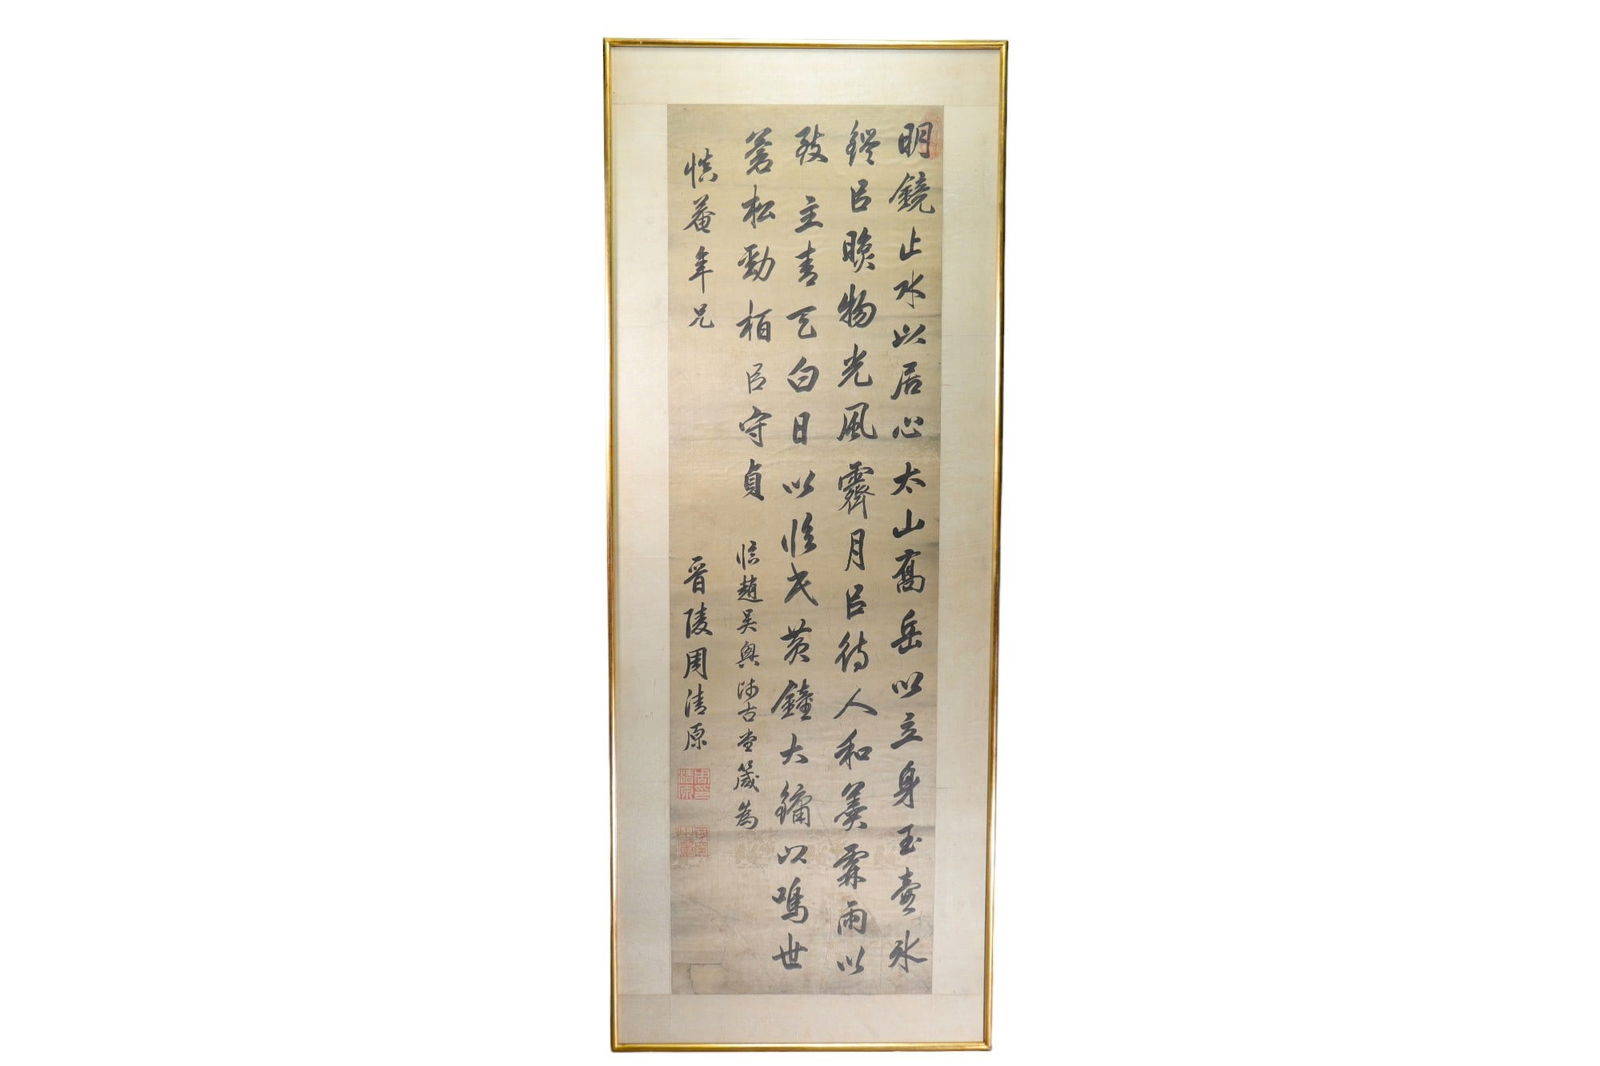 明鏡止水以居心太山喬岳以立身玉壺冰
鑑㠯映物光風霽月㠯待人和羹霖雨以
致主青天白日以臨民黃鐘大鏞以鳴世
蒼松勁栢㠯守貞
臨趙吳興師古堂箴為
慎菴年兄
晋陵周清原